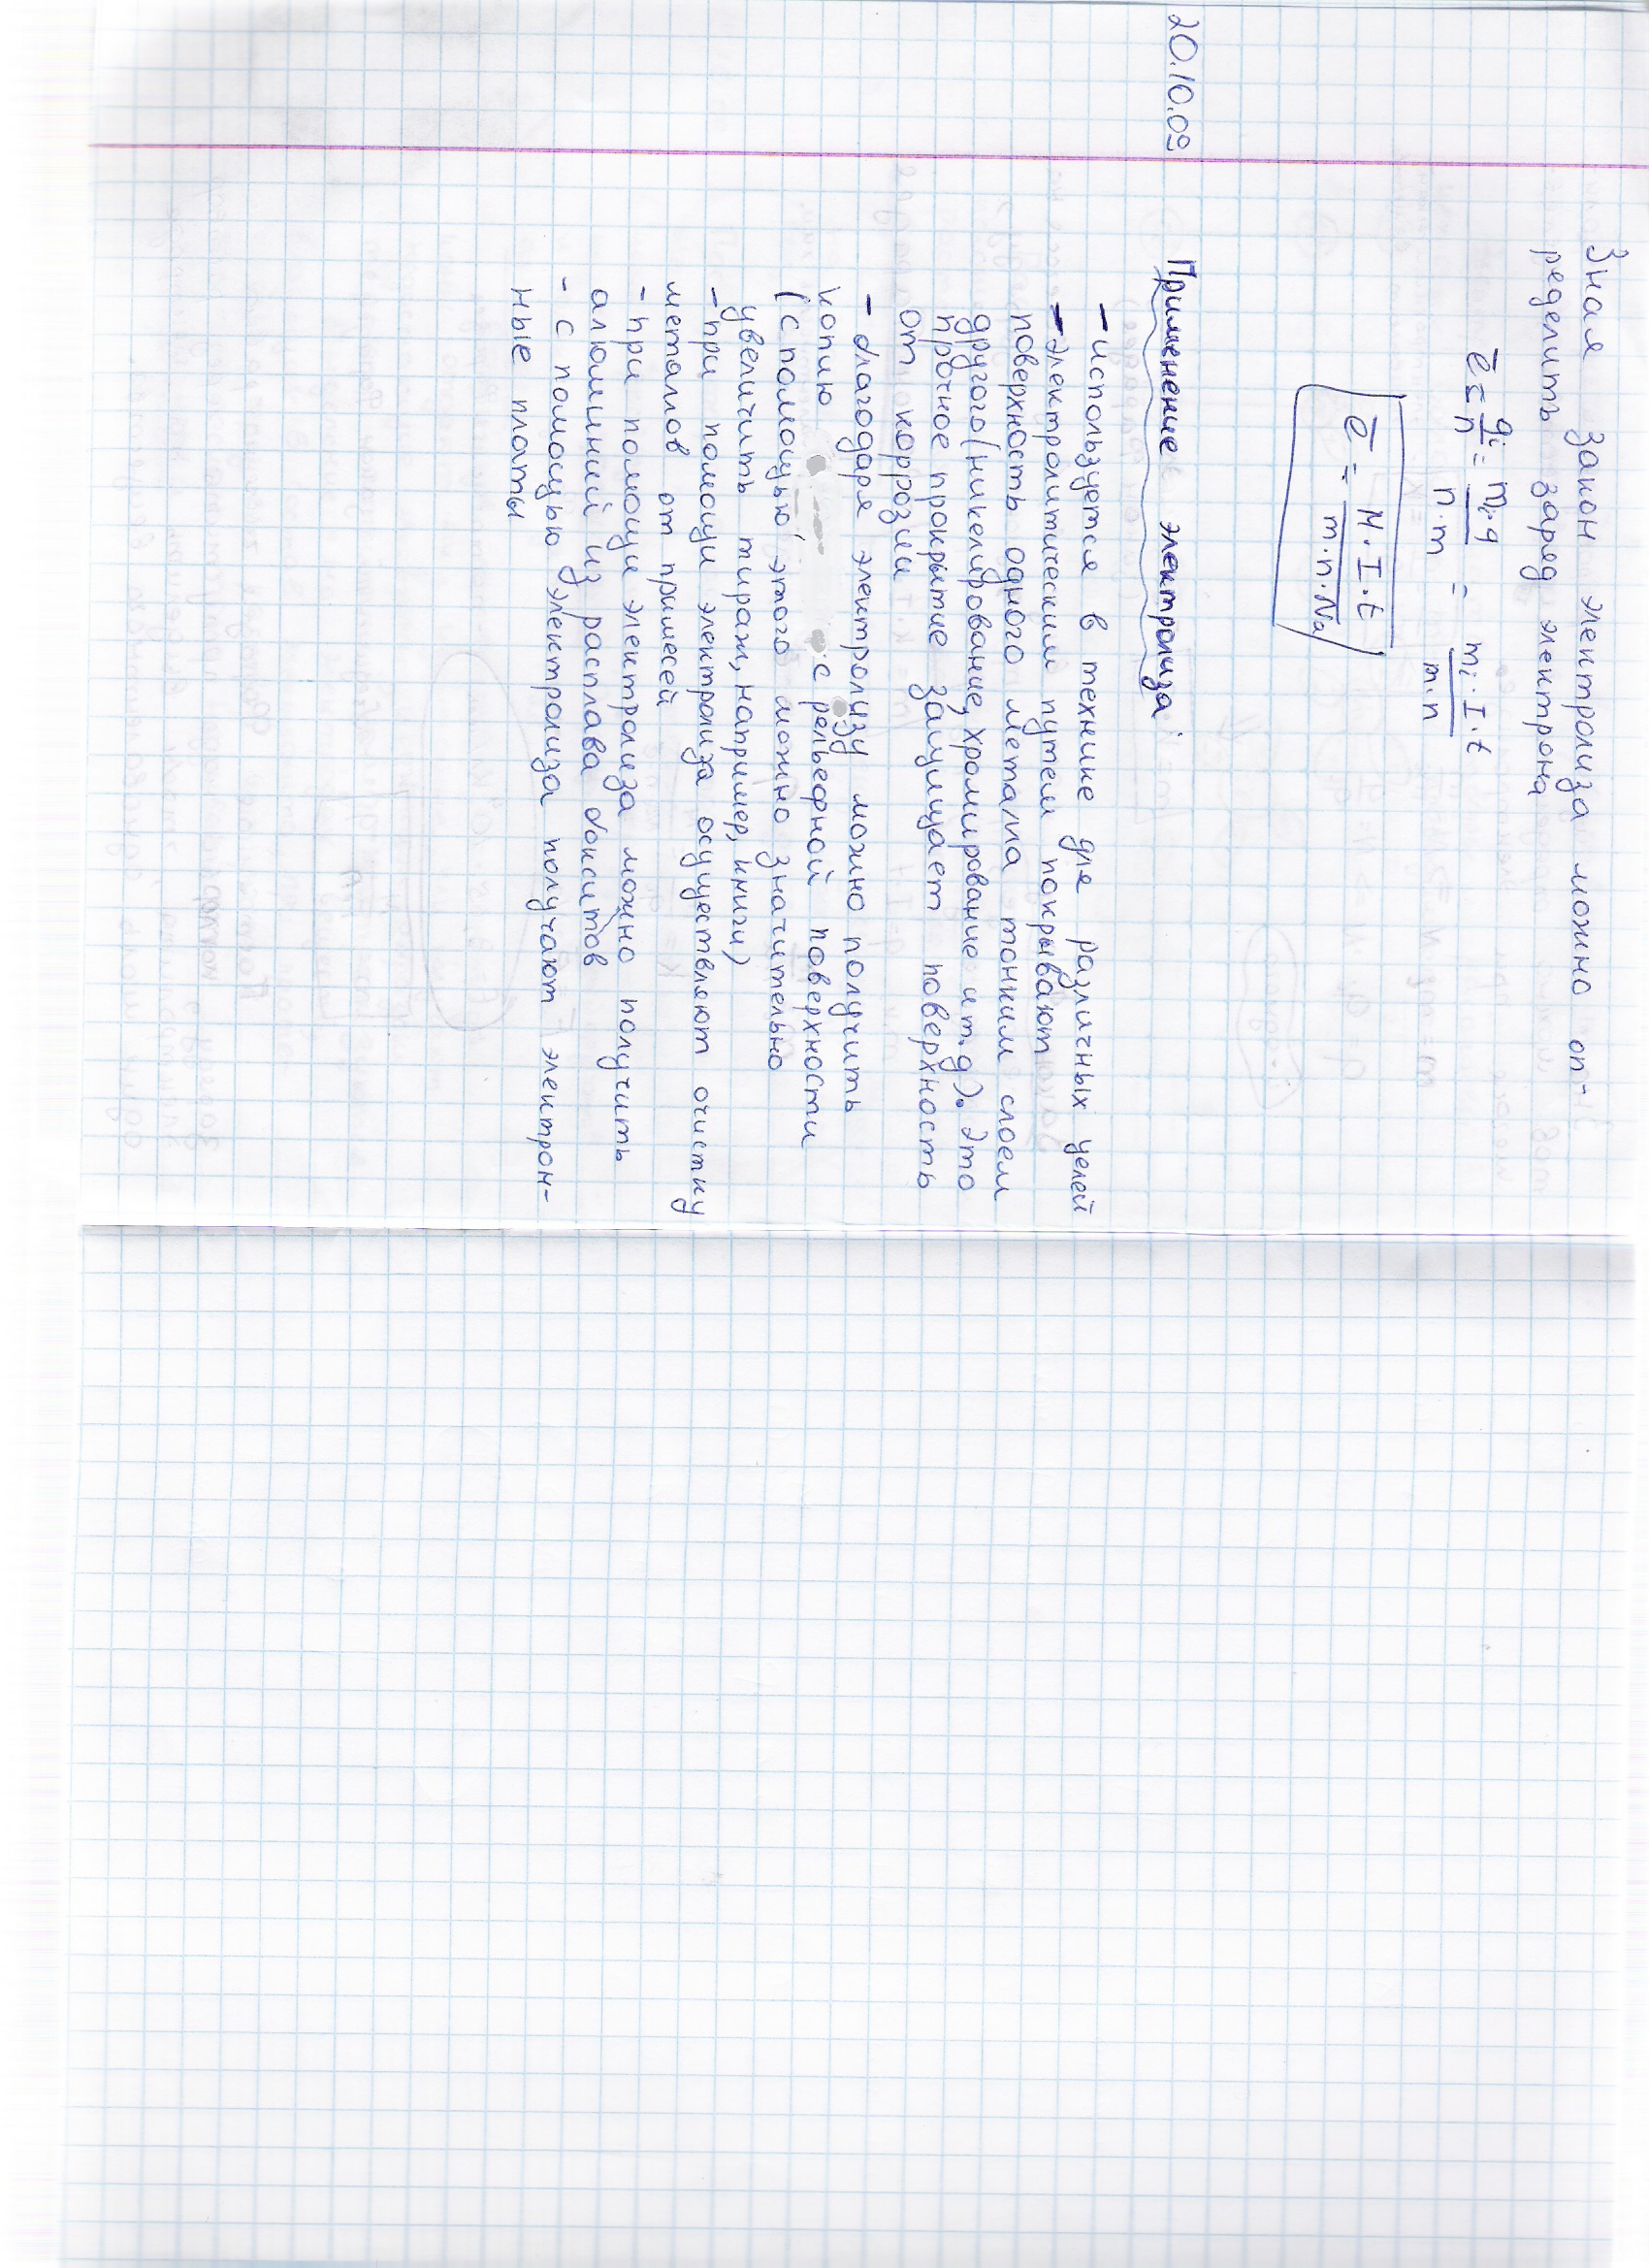 Зная закон электролиза можно оп-
ределить заряд электрона
ē = qi/n = mi·q/n·m = mi·I·t/m·n
ē = M·I·t/m·n·Na
20.10.09
Применение электролиза
- используется в технике для различных целей
- электролитическим путем покрывают
поверхность одного металла тонким слоем
другого (никелирование, хромирование и т.д). Это
прочное прокрытие защищает поверхность
от коррозии
- благодаря электролизу можно получить
копию с рельефной поверхности
(с помощью этого можно значительно
увеличить тираж, например, книги)
- при помощи электролиза осуществляют очистку
металлов от примесей
- при помощи электролиза можно получить
алюминий из расплава бокситов
- с помощью электролиза получают электрон-
ные платы